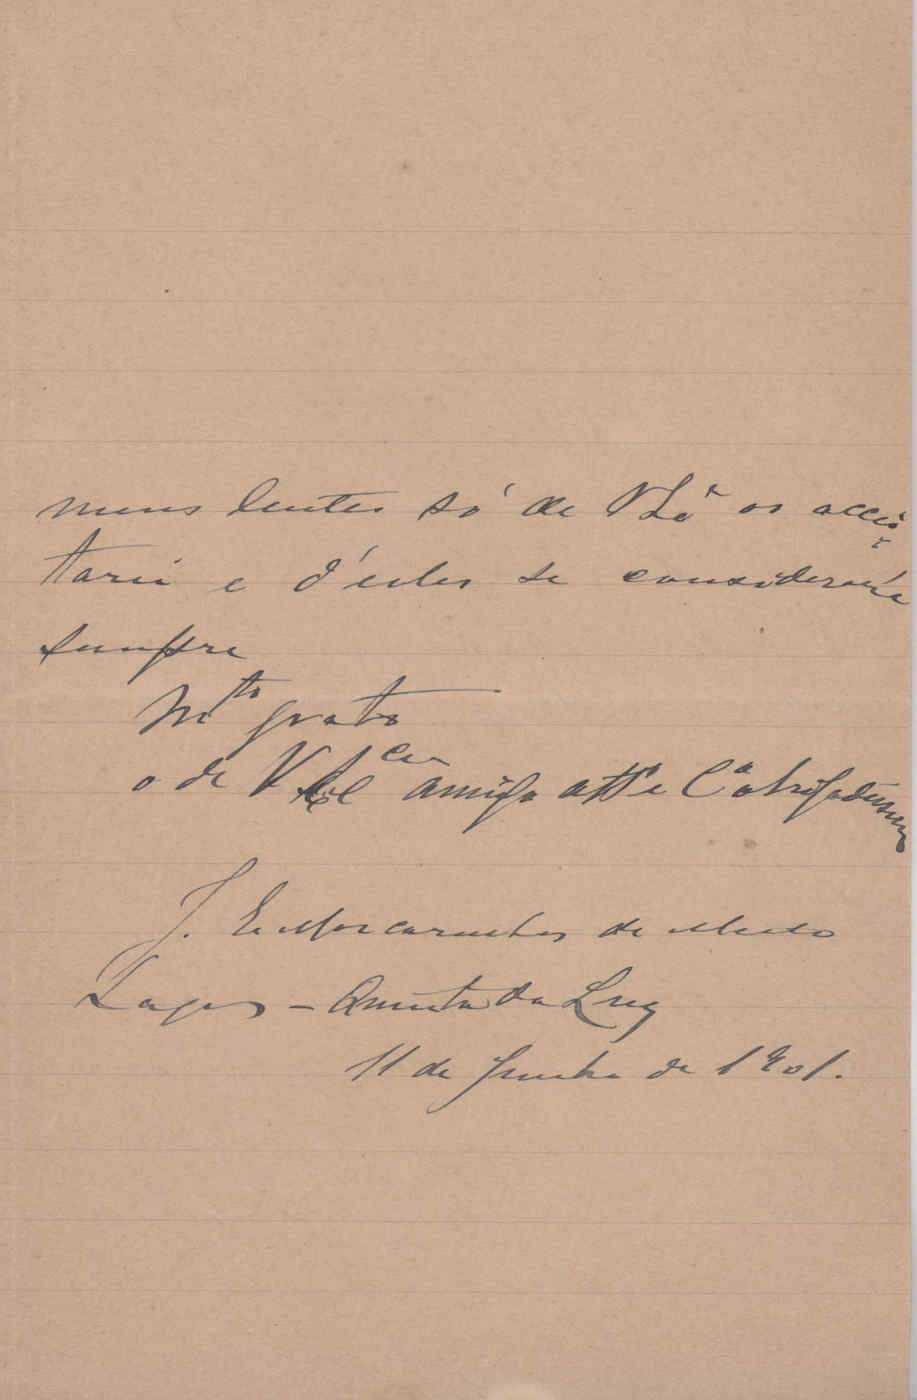 mens dentes só de V Sª os accei
tarei e d'estes se considerará
sempre
Mto grato
o de V amigo attº e Cº obrigadissimo
J. E. Mascarenhas de Mello
Lagos - Quinta da Luz
11 de Junho de 1901.